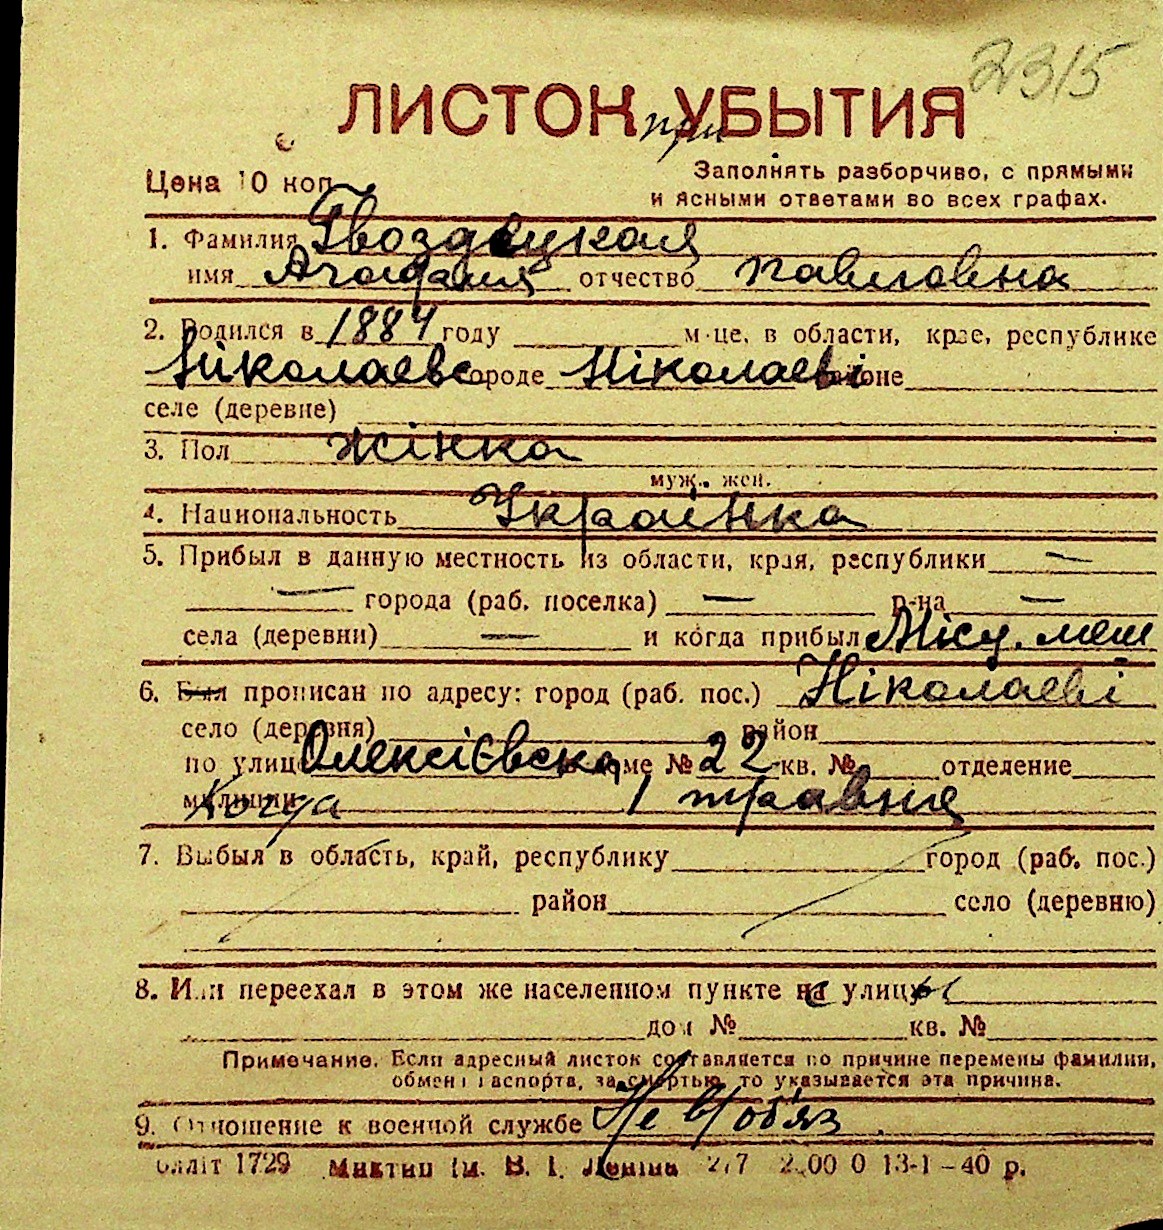 2315
ЛИСТОК при УБЫТИЯ
Цена 10 коп.
Заполнять разборчиво, с прямыми
и ясными ответами во всех графах.
1. Фамилия Гвоздецкая
имя отчество Павловна
2. Родился в 1884 году м-це, в области, крае, республике
Николаевс городе Ніколаеві районе
селе (деревне)
3. Пол жінка
муж., жен.
4. Национальность Українка
5. Прибыл в данную местность из области, края, республики —
— города (раб. поселка) — р-на —
села (деревни) — и когда прибыл Місц. меш
6. Был прописан по адресу: город (раб. пос.) Ніколаеві
село (деревня) район
по улице Олексієвска доме № 22 кв. № отделение
милиции Когда 1 травня
7. Выбыл в область, край, республику город (раб. пос.)
район село (деревню)
8. Или переехал в этом же населенном пункте на улицу
дом № кв. №
Примечание. Если адресный листок составляется по причине перемены фамилии,
обмена паспорта, за смертью, то указывается эта причина.
9. Отношение к военной службе Не в/об'яз
Облліт 1729 Миктип ім. В. І. Леніна 13-1-40 р.